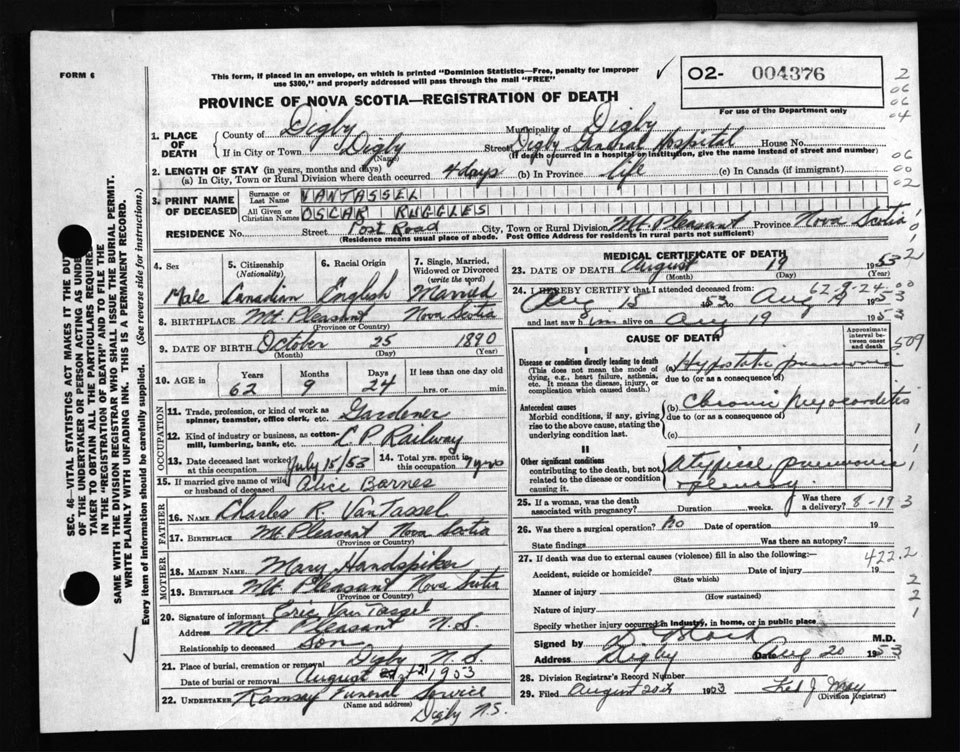 FORM 6
This form, if placed in an envelope, on which is printed "Dominion Statistics—Free, penalty for improper
use $300," and properly addressed will pass through the mail "FREE"
02- 004376
For use of the Department only
PROVINCE OF NOVA SCOTIA—REGISTRATION OF DEATH
1. PLACE OF DEATH
County of Digby Municipality of Digby
If in City or Town Digby (Name) Street Digby General Hospital House No.
(If death occurred in a hospital or institution, give the name instead of street and number)
2. LENGTH OF STAY (in years, months and days)
(a) In City, Town or Rural Division where death occurred 4 days (b) In Province life (c) In Canada (if immigrant)
3. PRINT NAME OF DECEASED
Surname or Last Name VANTASSEL
All Given or Christian Names OSCAR RUGGLES
RESIDENCE No. Street Post Road City, Town or Rural Division Mt. Pleasant Province Nova Scotia
(Residence means usual place of abode. Post Office Address for residents in rural parts not sufficient)
4. Sex 5. Citizenship (Nationality) 6. Racial Origin 7. Single, Married, Widowed or Divorced (write the word)
Male Canadian English Married
8. BIRTHPLACE Mt. Pleasant Nova Scotia
(Province or Country)
9. DATE OF BIRTH October 25 1890
(Month) (Day) (Year)
10. AGE in Years Months Days If less than one day old
62 9 24 hrs. or min.
OCCUPATION
11. Trade, profession, or kind of work as spinner, teamster, office clerk, etc. Gardener
12. Kind of industry or business, as cotton-mill, lumbering, bank, etc. C.P. Railway
13. Date deceased last worked at this occupation July 15/53 14. Total yrs. spent in this occupation 7 yrs
15. If married give name of wife or husband of deceased Alice Barnes
FATHER
16. NAME Charles R. VanTassel
17. BIRTHPLACE Mt. Pleasant Nova Scotia
(Province or Country)
MOTHER
18. MAIDEN NAME Mary Handspiker
19. BIRTHPLACE Mt. Pleasant Nova Scotia
(Province or Country)
20. Signature of informant Eric VanTassel
Address Mt. Pleasant N.S.
Relationship to deceased Son
21. Place of burial, cremation or removal Digby N.S.
Date of burial or removal August 21 1953
22. UNDERTAKER Ramsay Funeral Service
(Name and address)
Digby N.S.
MEDICAL CERTIFICATE OF DEATH
23. DATE OF DEATH August 19 1953
(Month) (Day) (Year)
62-9-24
24. I HEREBY CERTIFY that I attended deceased from:
Aug 15 53 to Aug 19 1953
and last saw him alive on Aug 19 1953
CAUSE OF DEATH
Approximate interval between onset and death
I
Disease or condition directly leading to death
(This does not mean the mode of dying, e.g., heart failure, asthenia, etc. It means the disease, injury, or complication which caused death.)
(a) Hypostatic pneumonia
due to (or as a consequence of)
Antecedent causes
Morbid conditions, if any, giving rise to the above cause, stating the underlying condition last.
(b) Chronic Myocarditis
due to (or as a consequence of)
(c)
II
Other significant conditions
contributing to the death, but not related to the disease or condition causing it.
Atypical pneumonia
+ pleurisy.
25. If a woman, was the death associated with pregnancy? Duration weeks. Was there a delivery? 8-19 3
26. Was there a surgical operation? No Date of operation 19
State findings Was there an autopsy?
27. If death was due to external causes (violence) fill in also the following:—
422.2
Accident, suicide or homicide? Date of injury 19
(State which)
Manner of injury
(How sustained)
Nature of injury
Specify whether injury occurred in industry, in home, or in public place
Signed by M.D.
Address Digby Date Aug 20 1953
28. Division Registrar's Record Number
29. Filed August 20th 1953 Fred J. May
(Division Registrar)
SEC. 46—VITAL STATISTICS ACT MAKES IT THE DUTY
OF THE UNDERTAKER OR PERSON ACTING AS UNDER-
TAKER TO OBTAIN ALL THE PARTICULARS REQUIRED
IN THE "REGISTRATION OF DEATH" AND TO FILE THE
SAME WITH THE DIVISION REGISTRAR WHO SHALL ISSUE THE BURIAL PERMIT.
WRITE PLAINLY WITH UNFADING INK. THIS IS A PERMANENT RECORD.
Every item of information should be carefully supplied. (See reverse side for instructions.)
2
06
06
04
06
00
02
1
0
1
2
00
509
1
1
1
2
2
1